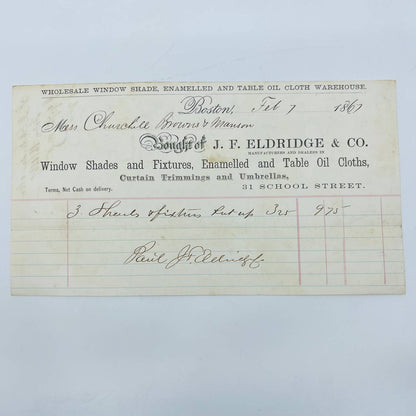 WHOLESALE WINDOW SHADE, ENAMELLED AND TABLE OIL CLOTH WAREHOUSE.
Boston, Feb 7 1867
Mess Churchill Browns & Manson
Bought of J. F. ELDRIDGE & CO.
MANUFACTURERS AND DEALERS IN
Window Shades and Fixtures, Enamelled and Table Oil Cloths,
Curtain Trimmings and Umbrellas,
Terms, Net Cash on delivery. 31 SCHOOL STREET.
3 Shades & fixtures Put up 325 9 75
J F Eldridge & Co